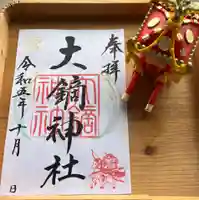 奉拝
大鏑神社
令和五年十月 日